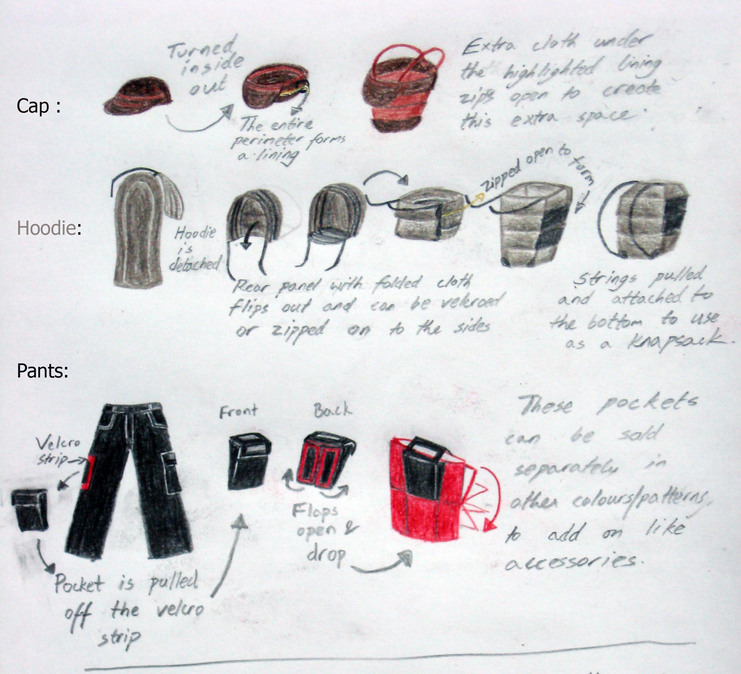 Cap :
Turned
inside
out
The entire
perimeter forms
a lining
Extra cloth under
the highlighted lining
zips open to create
this extra space.
Hoodie:
Hoodie
is
detached
Rear panel with folded cloth
flips out and can be velcroed
or zipped on to the sides
zipped open to form
Strings pulled
and attached to
the bottom to use
as a knapsack.
Pants:
Velcro
strip
Pocket is pulled
off the velcro
strip
Front
Back
Flaps
open &
drop
These pockets
can be sold
separately in
other colours/patterns,
to add on like
accessories.